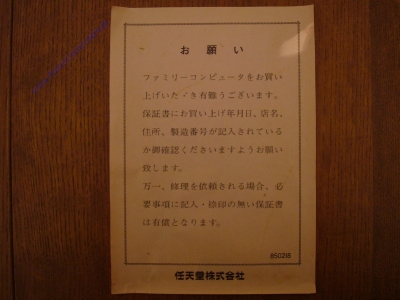 お願い
ファミリーコンピュータをお買い
上げいただき有難うございます。
保証書にお買い上げ年月日、店名、
住所、製造番号が記入されている
か御確認くださいますようお願い
致します。
万一、修理を依頼される場合、必
要事項に記入・捺印の無い保証書
は有償となります。
850218
任天堂株式会社